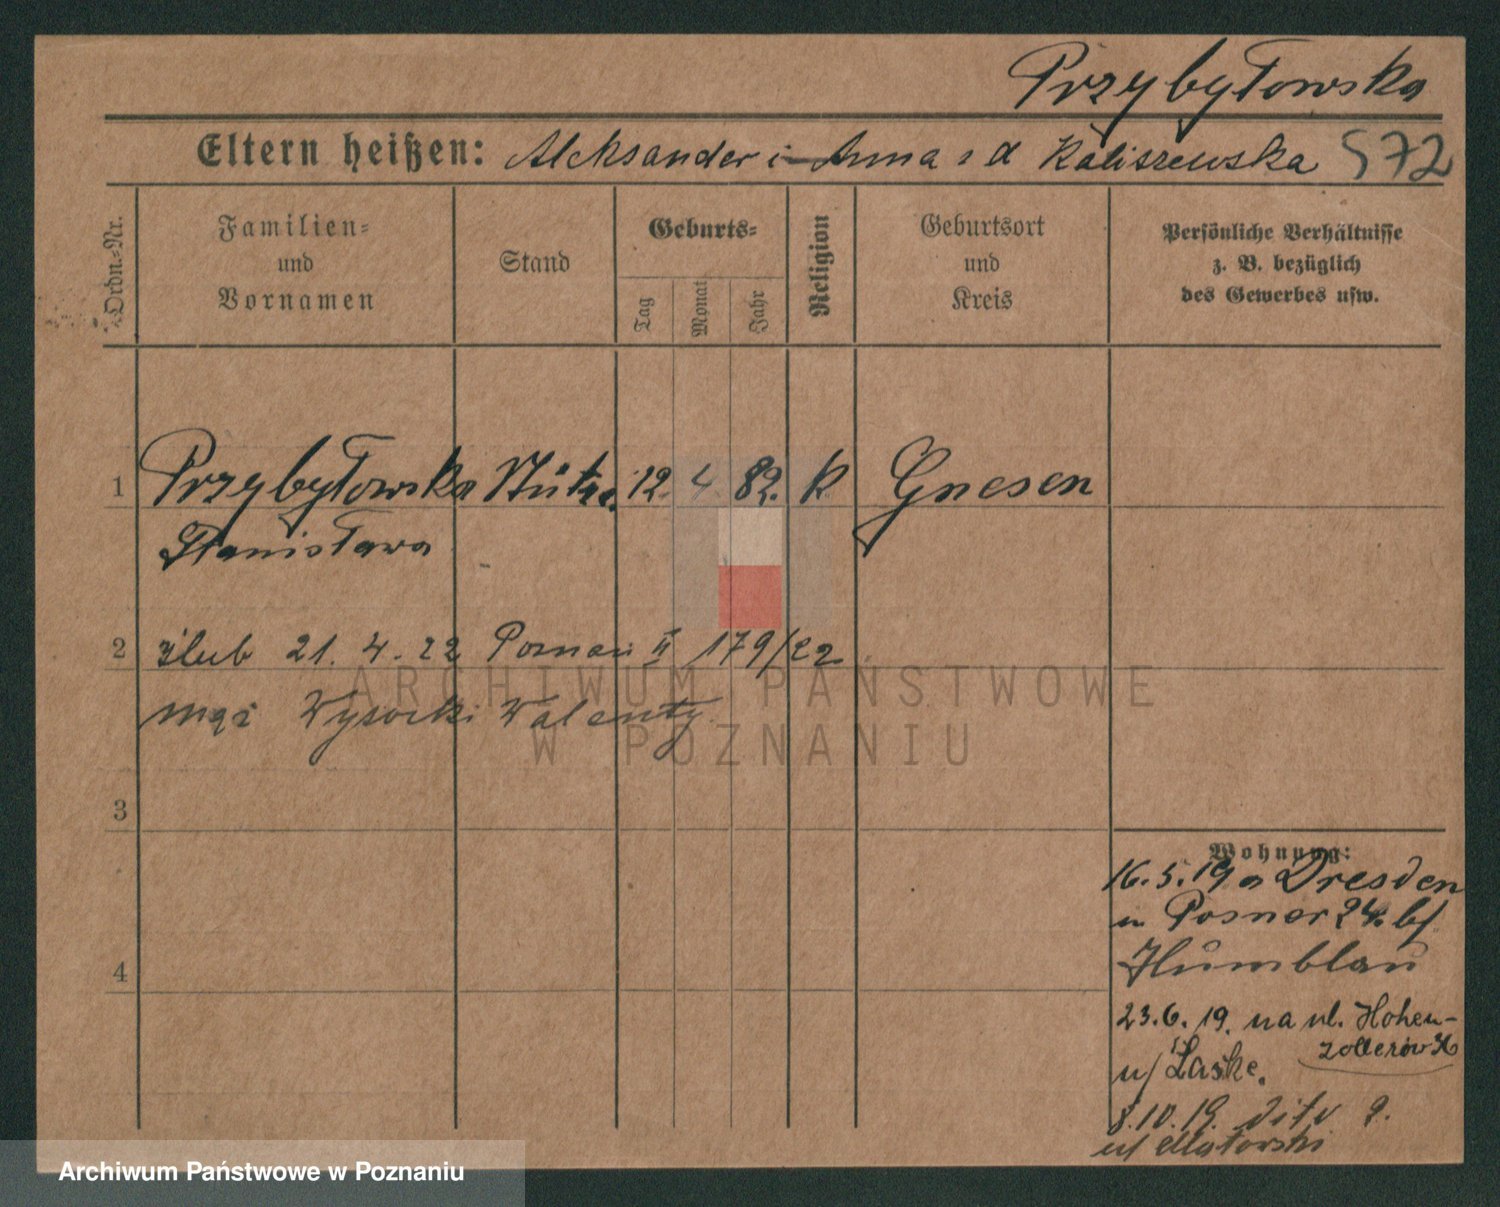 Przybyłowska
Eltern heißen: Aleksander i Anna z d Kaliszewska 572
Ordn.-Nr.
Familien-
und
Vornamen
Stand
Geburts-
Tag
Monat
Jahr
Religion
Geburtsort
und
Kreis
Persönliche Verhältnisse
z. B. bezüglich
des Gewerbes usw.
1 Przybyłowska Stütze. 12. 4. 82. k Gnesen
Stanisława
2 ślub 21. 4. 22 Poznań II 179/22
mąż Wysocki Walenty
ARCHIWUM PAŃSTWOWE
W POZNANIU
3
4
Wohnung:
16.5.19 a Dresden
n Posner 24 bf
Humblau
23.6.19. na ul. Hohen-
zollerów
u/ Laske.
8.10.19. dito 9.
u/
Archiwum Państwowe w Poznaniu